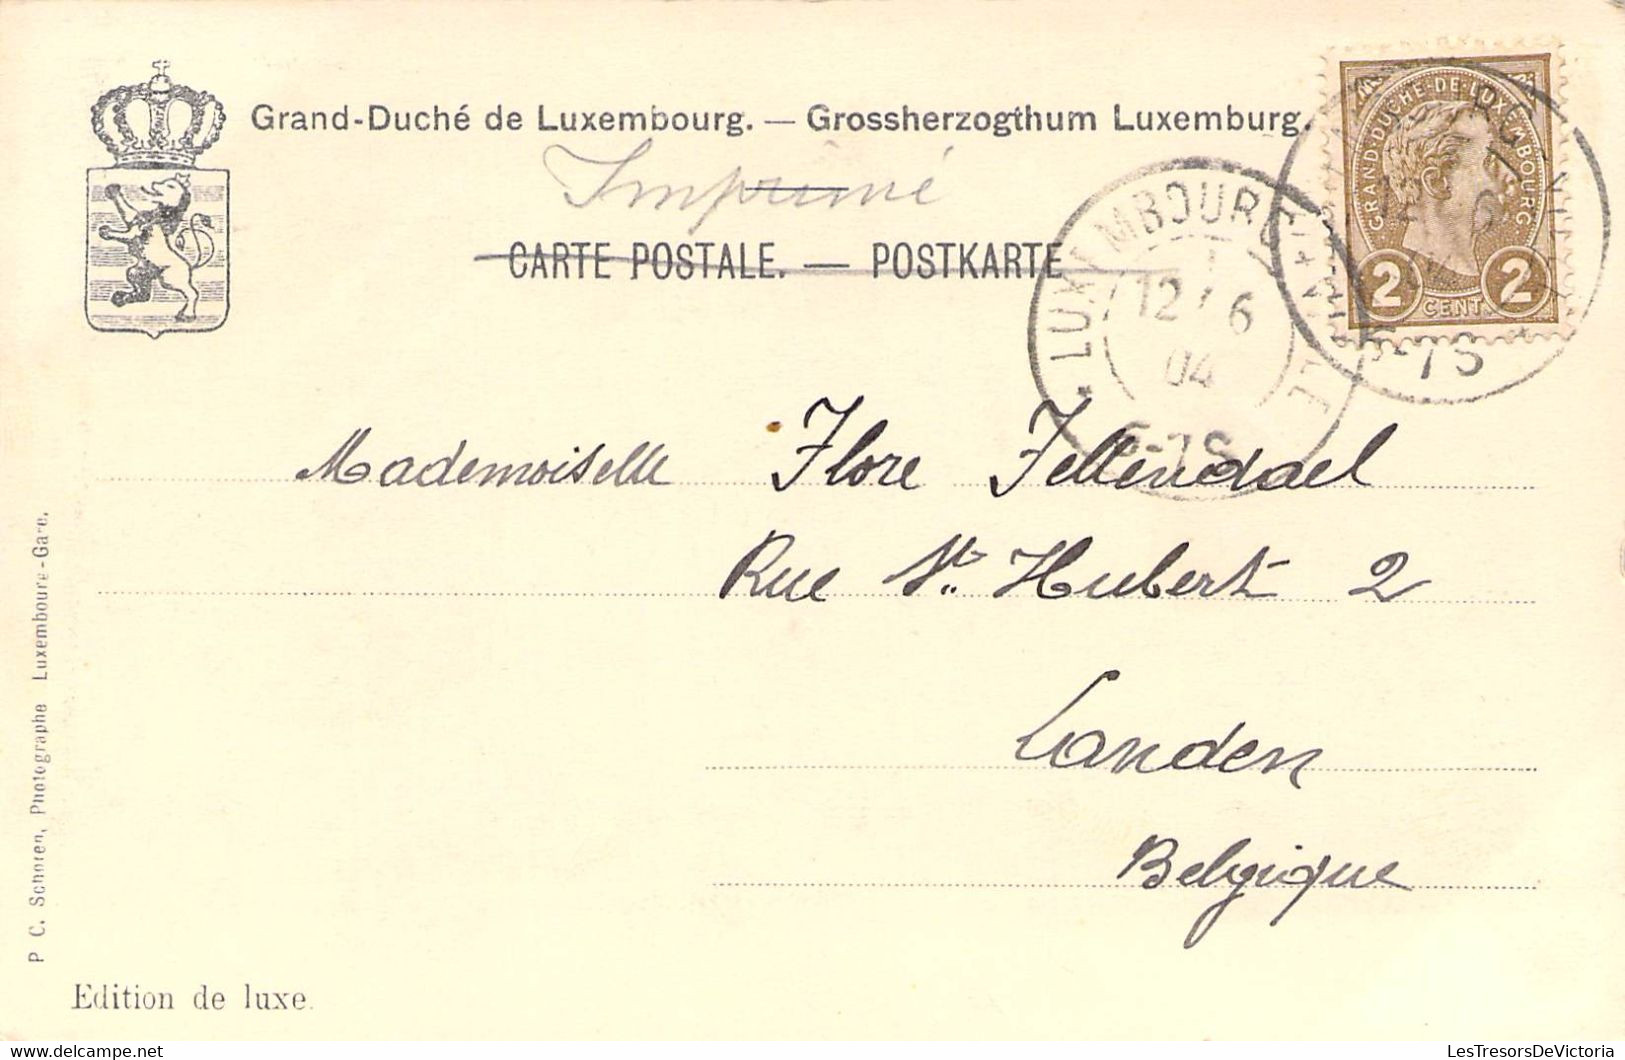 Grand-Duché de Luxembourg. — Grossherzogthum Luxemburg.
Imprimé
CARTE POSTALE. — POSTKARTE
GRAND-DUCHÉ-DE-LUXEMBOURG
2 CENT. 2
LUXEMBOURG
VILLE
12 6
04
6-7S
-7S
Mademoiselle Flore Jellendael
Rue St. Hubert 2
Landen
Belgique
P. C. Schoren, Photographe Luxembourg-Gare.
Edition de luxe.
LesTresorsDeVictoria